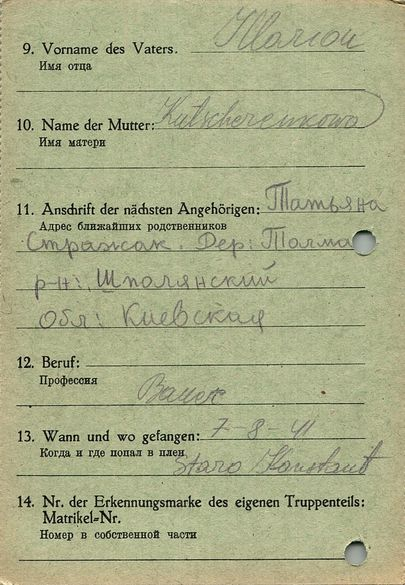 9. Vorname des Vaters. Illarion
Имя отца
10. Name der Mutter: Kutscherenkowa
Имя матери
11. Anschrift der nächsten Angehörigen: Татьяна
Адрес ближайших родственников
Стражак. Дер: Толма
р-н: Шполянский
обл: Киевская
12. Beruf:
Профессия
Bauer
13. Wann und wo gefangen: 7-8-41
Когда и где попал в плен
Staro Konstant
14. Nr. der Erkennungsmarke des eigenen Truppenteils:
Matrikel-Nr.
Номер в собственной части